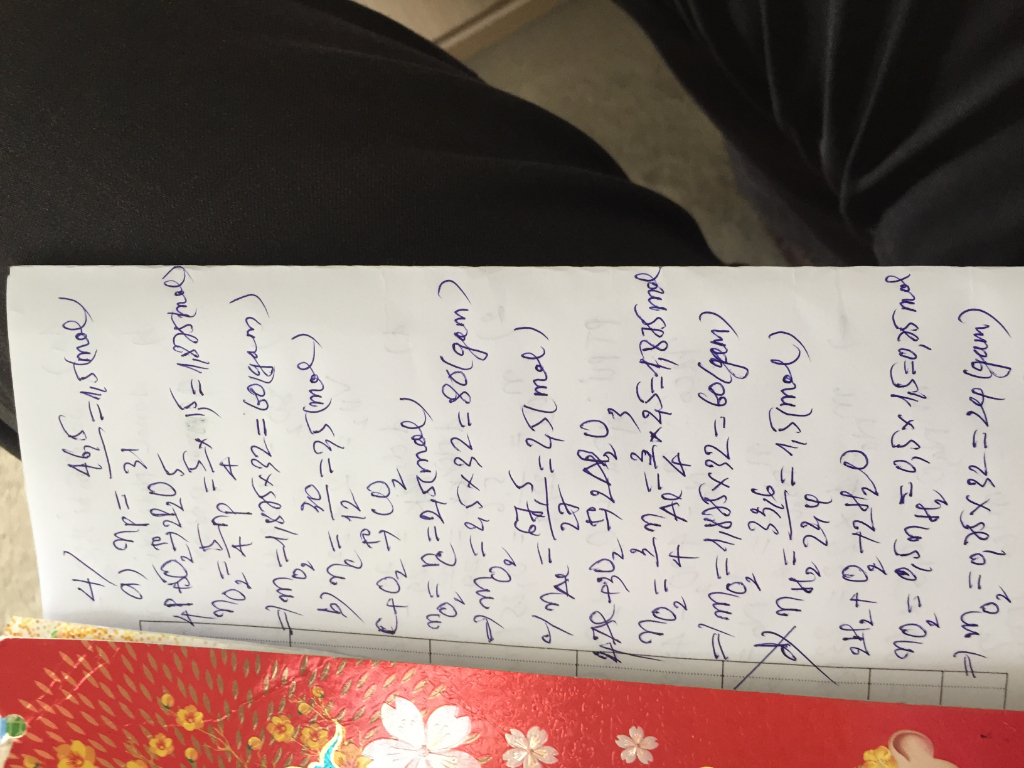 4/
a) nP = 46,5/31 = 1,5 (mol)
4P + 5O2 →t° 2P2O5
nO2 = 5/4 nP = 5/4 x 1,5 = 1,875 (mol)
=> mO2 = 1,875 x 32 = 60 (gam)
b) nC = 30/12 = 2,5 (mol)
C + O2 →t° CO2
nO2 = nC = 2,5 (mol)
=> mO2 = 2,5 x 32 = 80 (gam)
c) nAl = 67,5/27 = 2,5 (mol)
4Al + 3O2 →t° 2Al2O3
nO2 = 3/4 nAl = 3/4 x 2,5 = 1,875 mol
=> mO2 = 1,875 x 32 = 60 (gam)
d) nH2 = 33,6/22,4 = 1,5 (mol)
2H2 + O2 → 2H2O
nO2 = 0,5 nH2 = 0,5 x 1,5 = 0,75 mol
=> mO2 = 0,75 x 32 = 24 (gam)